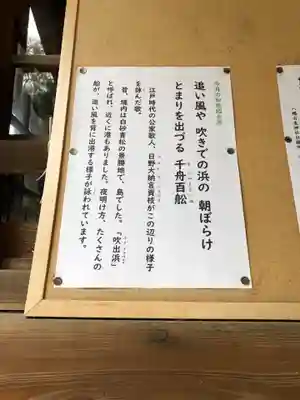 追い風や 吹きての浜の 朝ぼらけ
とまりを出づる 千舟百舩
江戸時代の公家歌人、日野大納言資枝がこの辺りの様子
を詠んだ歌。
昔、境内は白砂青松の景勝地で、島でした。「吹出浜」
と呼ばれ、近くに港もありました。夜明け方、たくさんの
船が、追い風を背に出港する様子が詠われています。